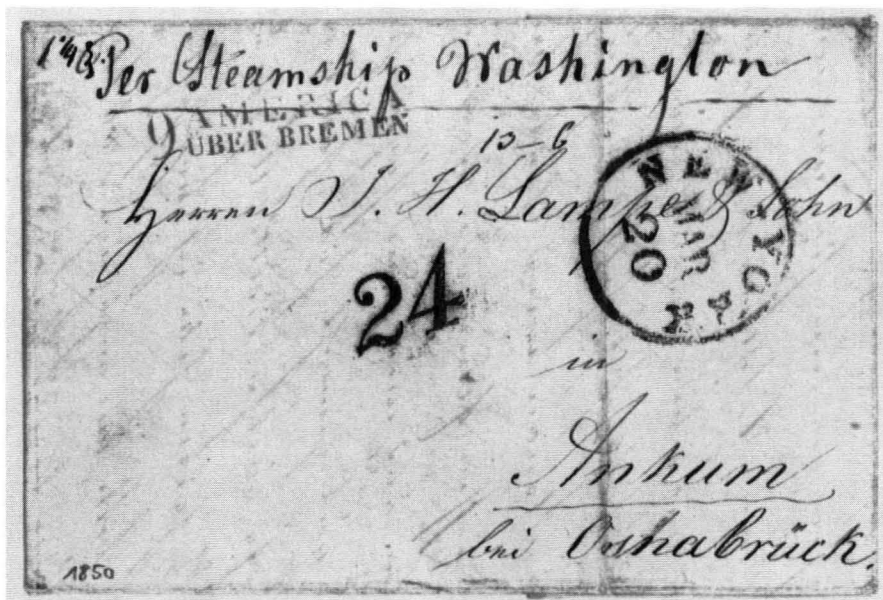 Per Steamship Washington
9 AMERICA
ÜBER BREMEN
13-6
Herren J. H. Lampe & Sohn
NEW YORK
MAR
20
24
in
Ankum
bei Osnabrück.
1850